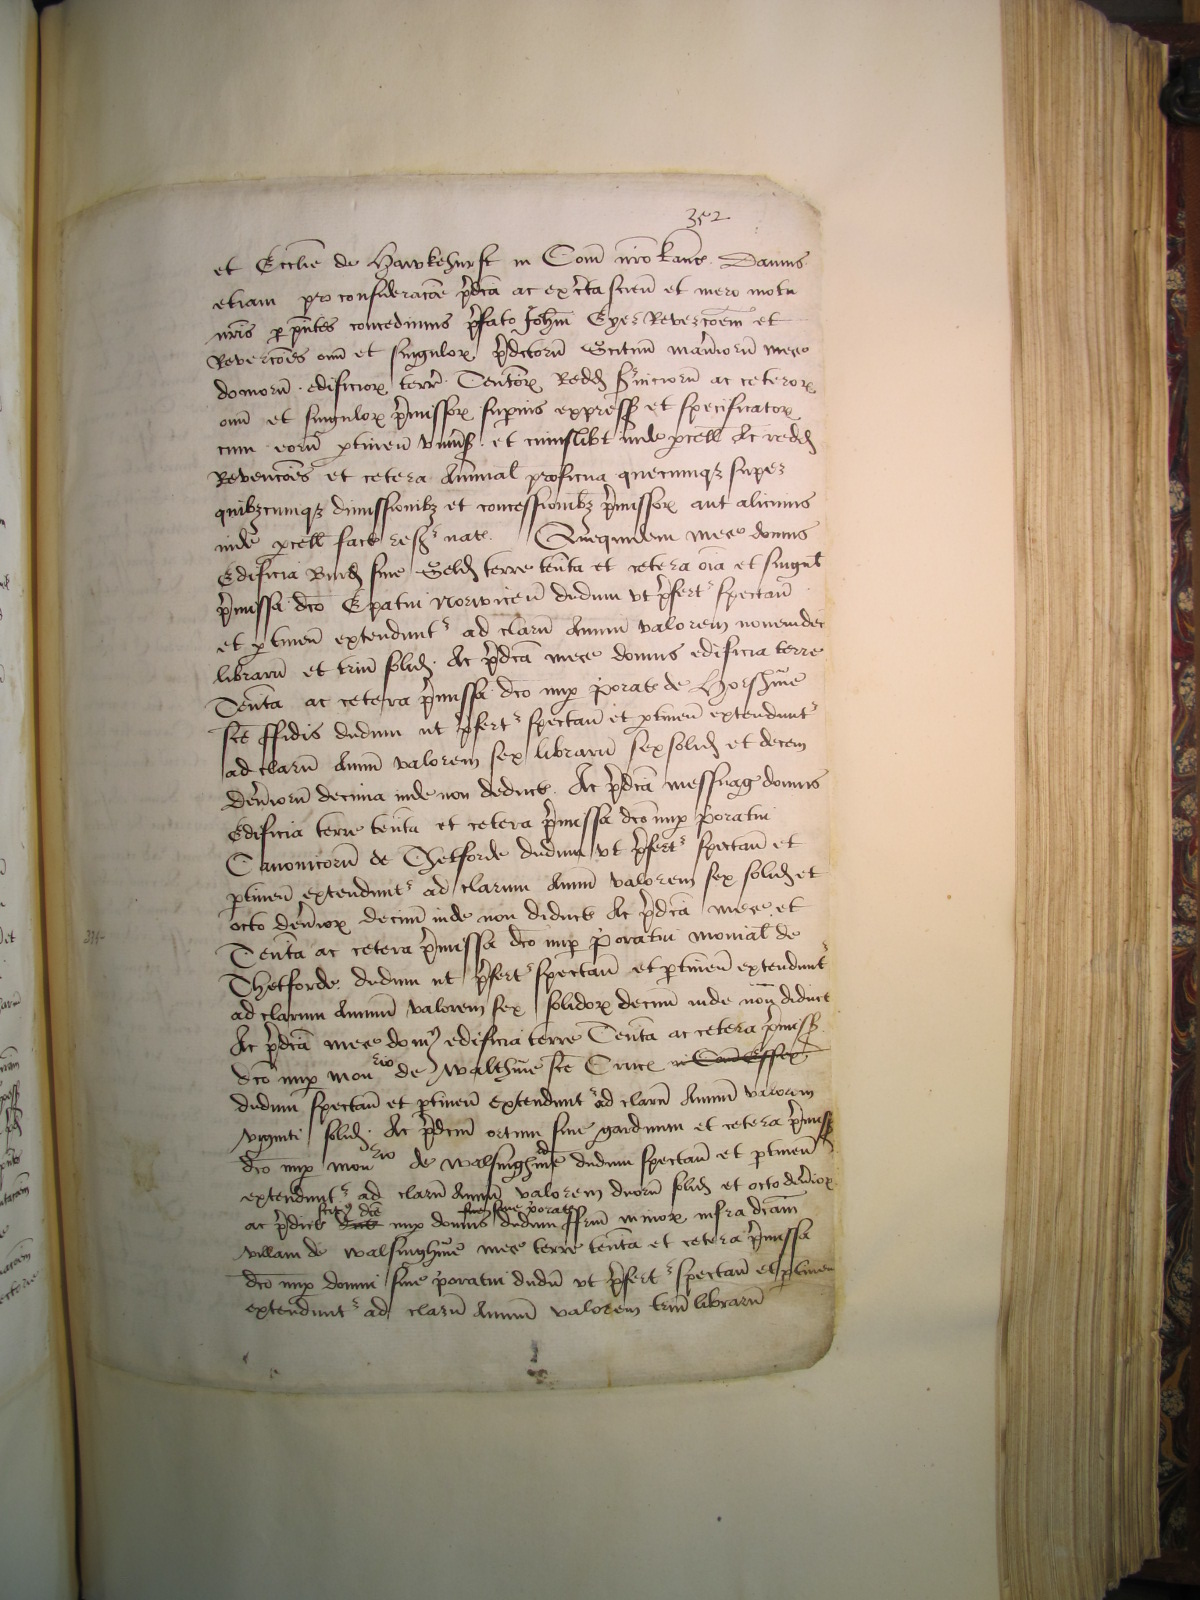 352
et Ecclie de Hawkehurst in Com nro kanc. Damus
etiam pro consideracoe pdca ac ex certa scien et mero motu
nris p pntes concedimus pfato Johi Eyer Revercoem et
Revercoes oim et singulor pdictoru Scituu manerioru mes
domoru edificior terr Tentor Redd Sviciorum ac ceteror
oim et singulor pmissor supius express et specificator
cum eoru ptinen univs et cuiuslibt inde pcell Ac redd
Revencoes et cetera Annual proficua quecumq super
quibzcumqz dimissionibz et concessionibz pmissor aut alicuius
inde pcell fact resvat. Quequidem mes domus
Edificia Gelde terre tenta et cetera oia et singul
pmissa dco Epatui Norwicen dudum ut pfert spectan
et ptinen extendunt ad claru Annuu valorem novemdec
libraru et triu solid. Ac pdca mes domus edificia terre
Tenta ac cetera pmissa dco nup porat de Horshme
sce ffidis dudum ut pfert spectan et ptinen extendunt
ad claru Annuu valorem sex libraru sex solid et decem
denarioru decima inde non deduct. Ac pdca messuag domus
Edificia terre tenta et cetera pmissa dco nup poratui
Canonicoru de Thetforde dudum ut pfert spectan et
ptinen extendunt ad clarum Annuu valorem sex solid et
octo denarior decim inde non deduct Ac pdca mes et
Tenta ac cetera pmissa dco nup poratui monial de
Thetforde dudum ut pfert spectan et ptinen extendunt
ad clarum Annuu valorem sex solidor decim inde non deduct
Ac pdca mes dom edificia terre Tenta ac cetera pmiss
dco nup mon rio de Walthme sce Cruc in Com Essex
dudum spectan et ptinen extendunt ad claru Annuu valorem
viginti solid. Ac pdcm ortum sive gardinum et cetera pmiss
dco nup mon rio de walsinghme dudum spectan et ptinen
extendunt ad claru Annuu valorem duoru solid et octo denarior
scit dce sive porat
ac pdict dict nup domus dudum ffrm minor infra dcam
villam de walsinghme mes terre tenta et cetera pmissa
dco nup domui sive poratui dudu ut pfert spectan et ptinen
extendunt ad claru Annuu valorem triu libraru